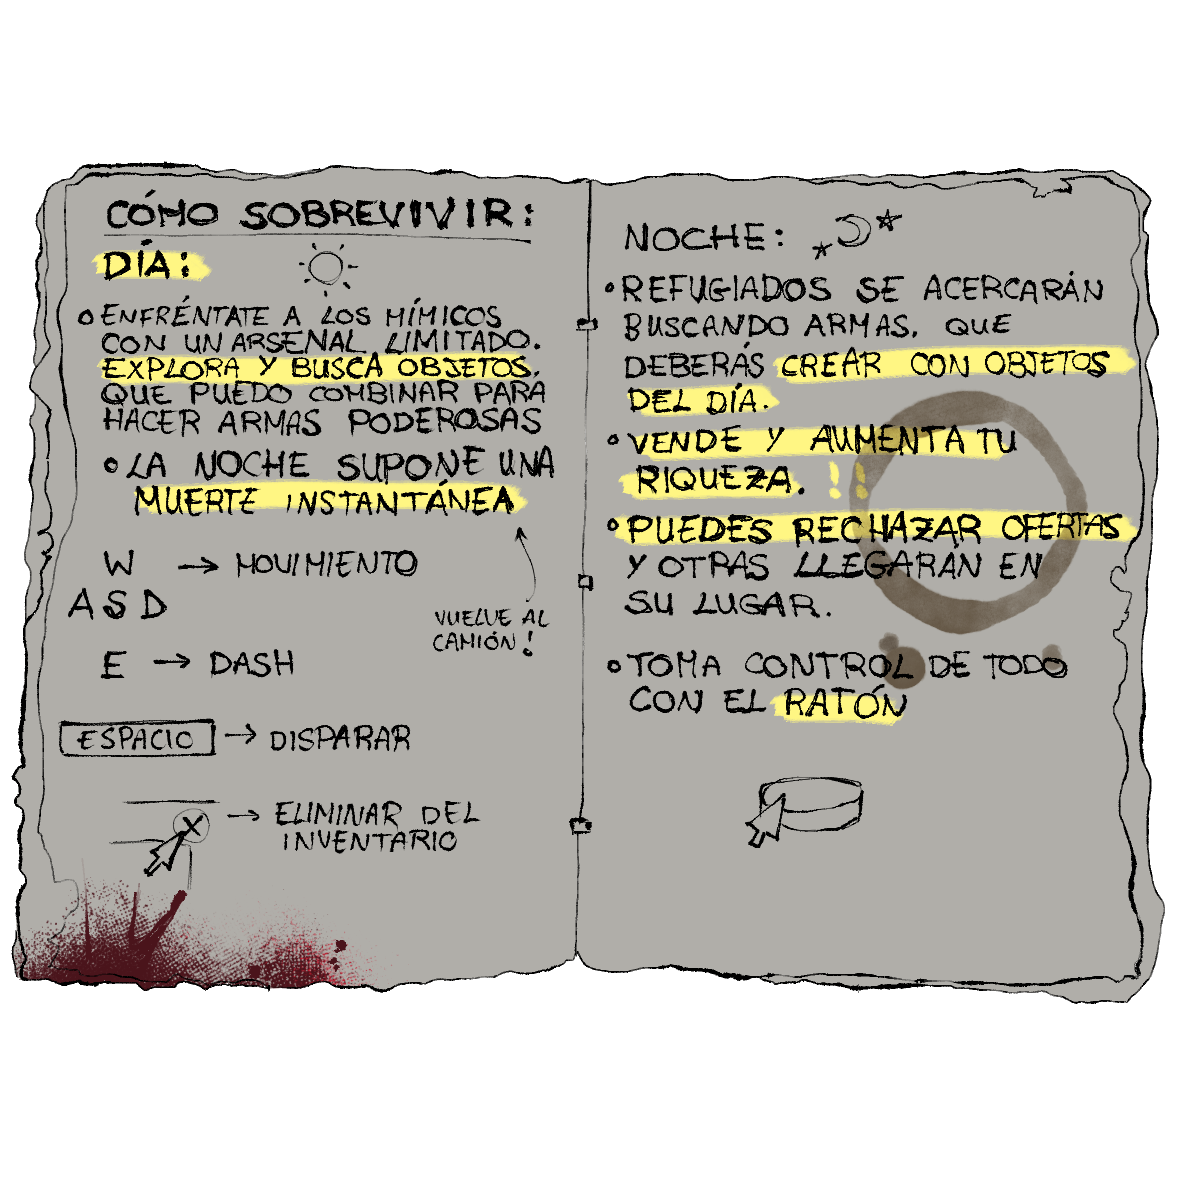 CÓMO SOBREVIVIR:
DÍA:
ENFRÉNTATE A LOS MÍMICOS
CON UN ARSENAL LIMITADO.
EXPLORA Y BUSCA OBJETOS,
QUE PUEDO COMBINAR PARA
HACER ARMAS PODEROSAS
LA NOCHE SUPONE UNA
MUERTE INSTANTÁNEA
VUELVE AL
CAMIÓN!
W → MOVIMIENTO
A S D
E → DASH
ESPACIO → DISPARAR
X → ELIMINAR DEL
INVENTARIO
NOCHE:
REFUGIADOS SE ACERCARÁN
BUSCANDO ARMAS, QUE
DEBERÁS CREAR CON OBJETOS
DEL DÍA.
VENDE Y AUMENTA TU
RIQUEZA. !!
PUEDES RECHAZAR OFERTAS
Y OTRAS LLEGARÁN EN
SU LUGAR.
TOMA CONTROL DE TODO
CON EL RATÓN